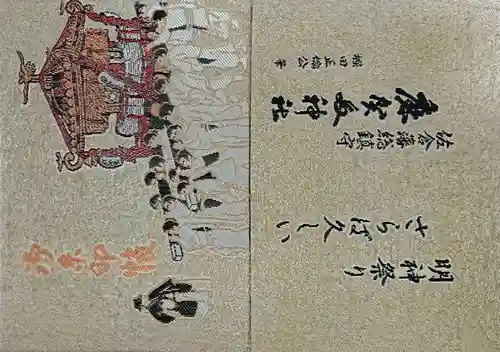 堀田正倫公筆
麻賀多神社
佐倉藩総鎮守
さらば久しい
明神祭り
御朱印帳